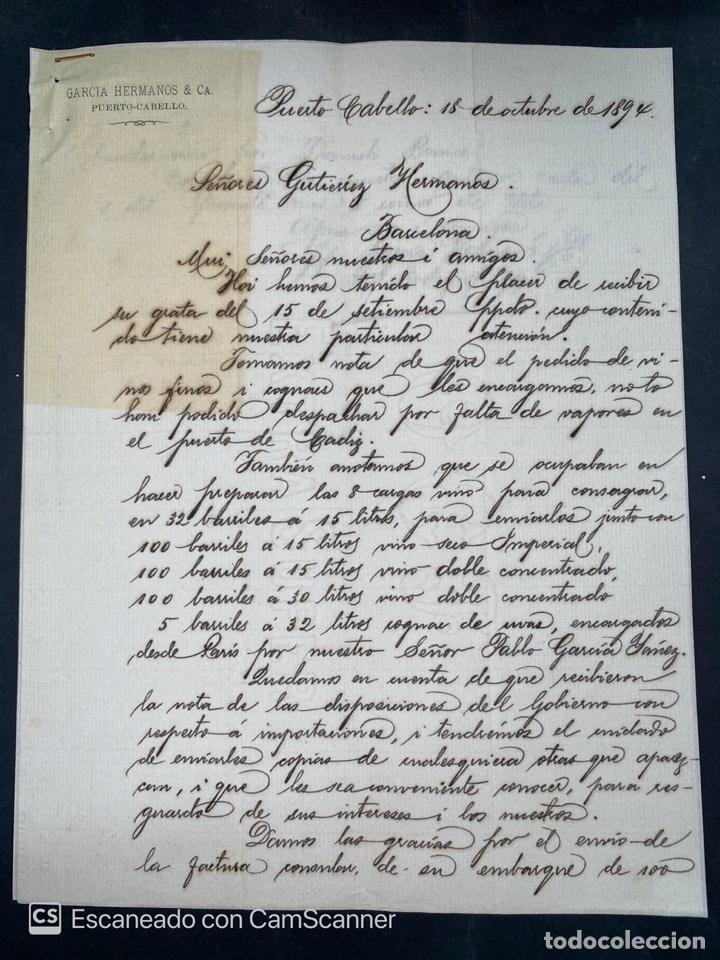 GARCIA HERMANOS & CA.
PUERTO-CABELLO.
Puerto Cabello: 18 de octubre de 1894.
Señores Gutierrez Hermanos.
Barcelona
Mui Señores nuestros i amigos.
Hoi hemos tenido el placer de recibir
su grata del 15 de setiembre ppdo. cuyo conteni-
do tiene nuestra particular atención.
Tomamos nota de que el pedido de vi-
nos finos i cognac que les encargamos, no lo
han podido despachar por falta de vapores en
el puerto de Cadiz.
También anotamos que se ocupaban en
hacer preparar las 8 cargas vino para consagrar,
en 32 barriles á 15 litros, para enviarlos junto con
100 barriles á 15 litros vino seco Imperial,
100 barriles á 15 litros vino doble concentrado,
100 barriles á 30 litros vino doble concentrado
5 barriles á 32 litros cognac de uvas, encargados
desde Paris por nuestro Señor Pablo García Yánez.
Quedamos en cuenta de que recibieron
la nota de las disposiciones del Gobierno con
respecto á importaciones, i tendremos el cuidado
de enviarles copias de cualesquiera otras que aparez-
can, i que les sea conveniente conocer, para res-
guardo de sus intereses i los nuestros.
Damos las gracias por el envio de
la factura consular, de su embarque de 100
CS Escaneado con CamScanner
todocoleccion